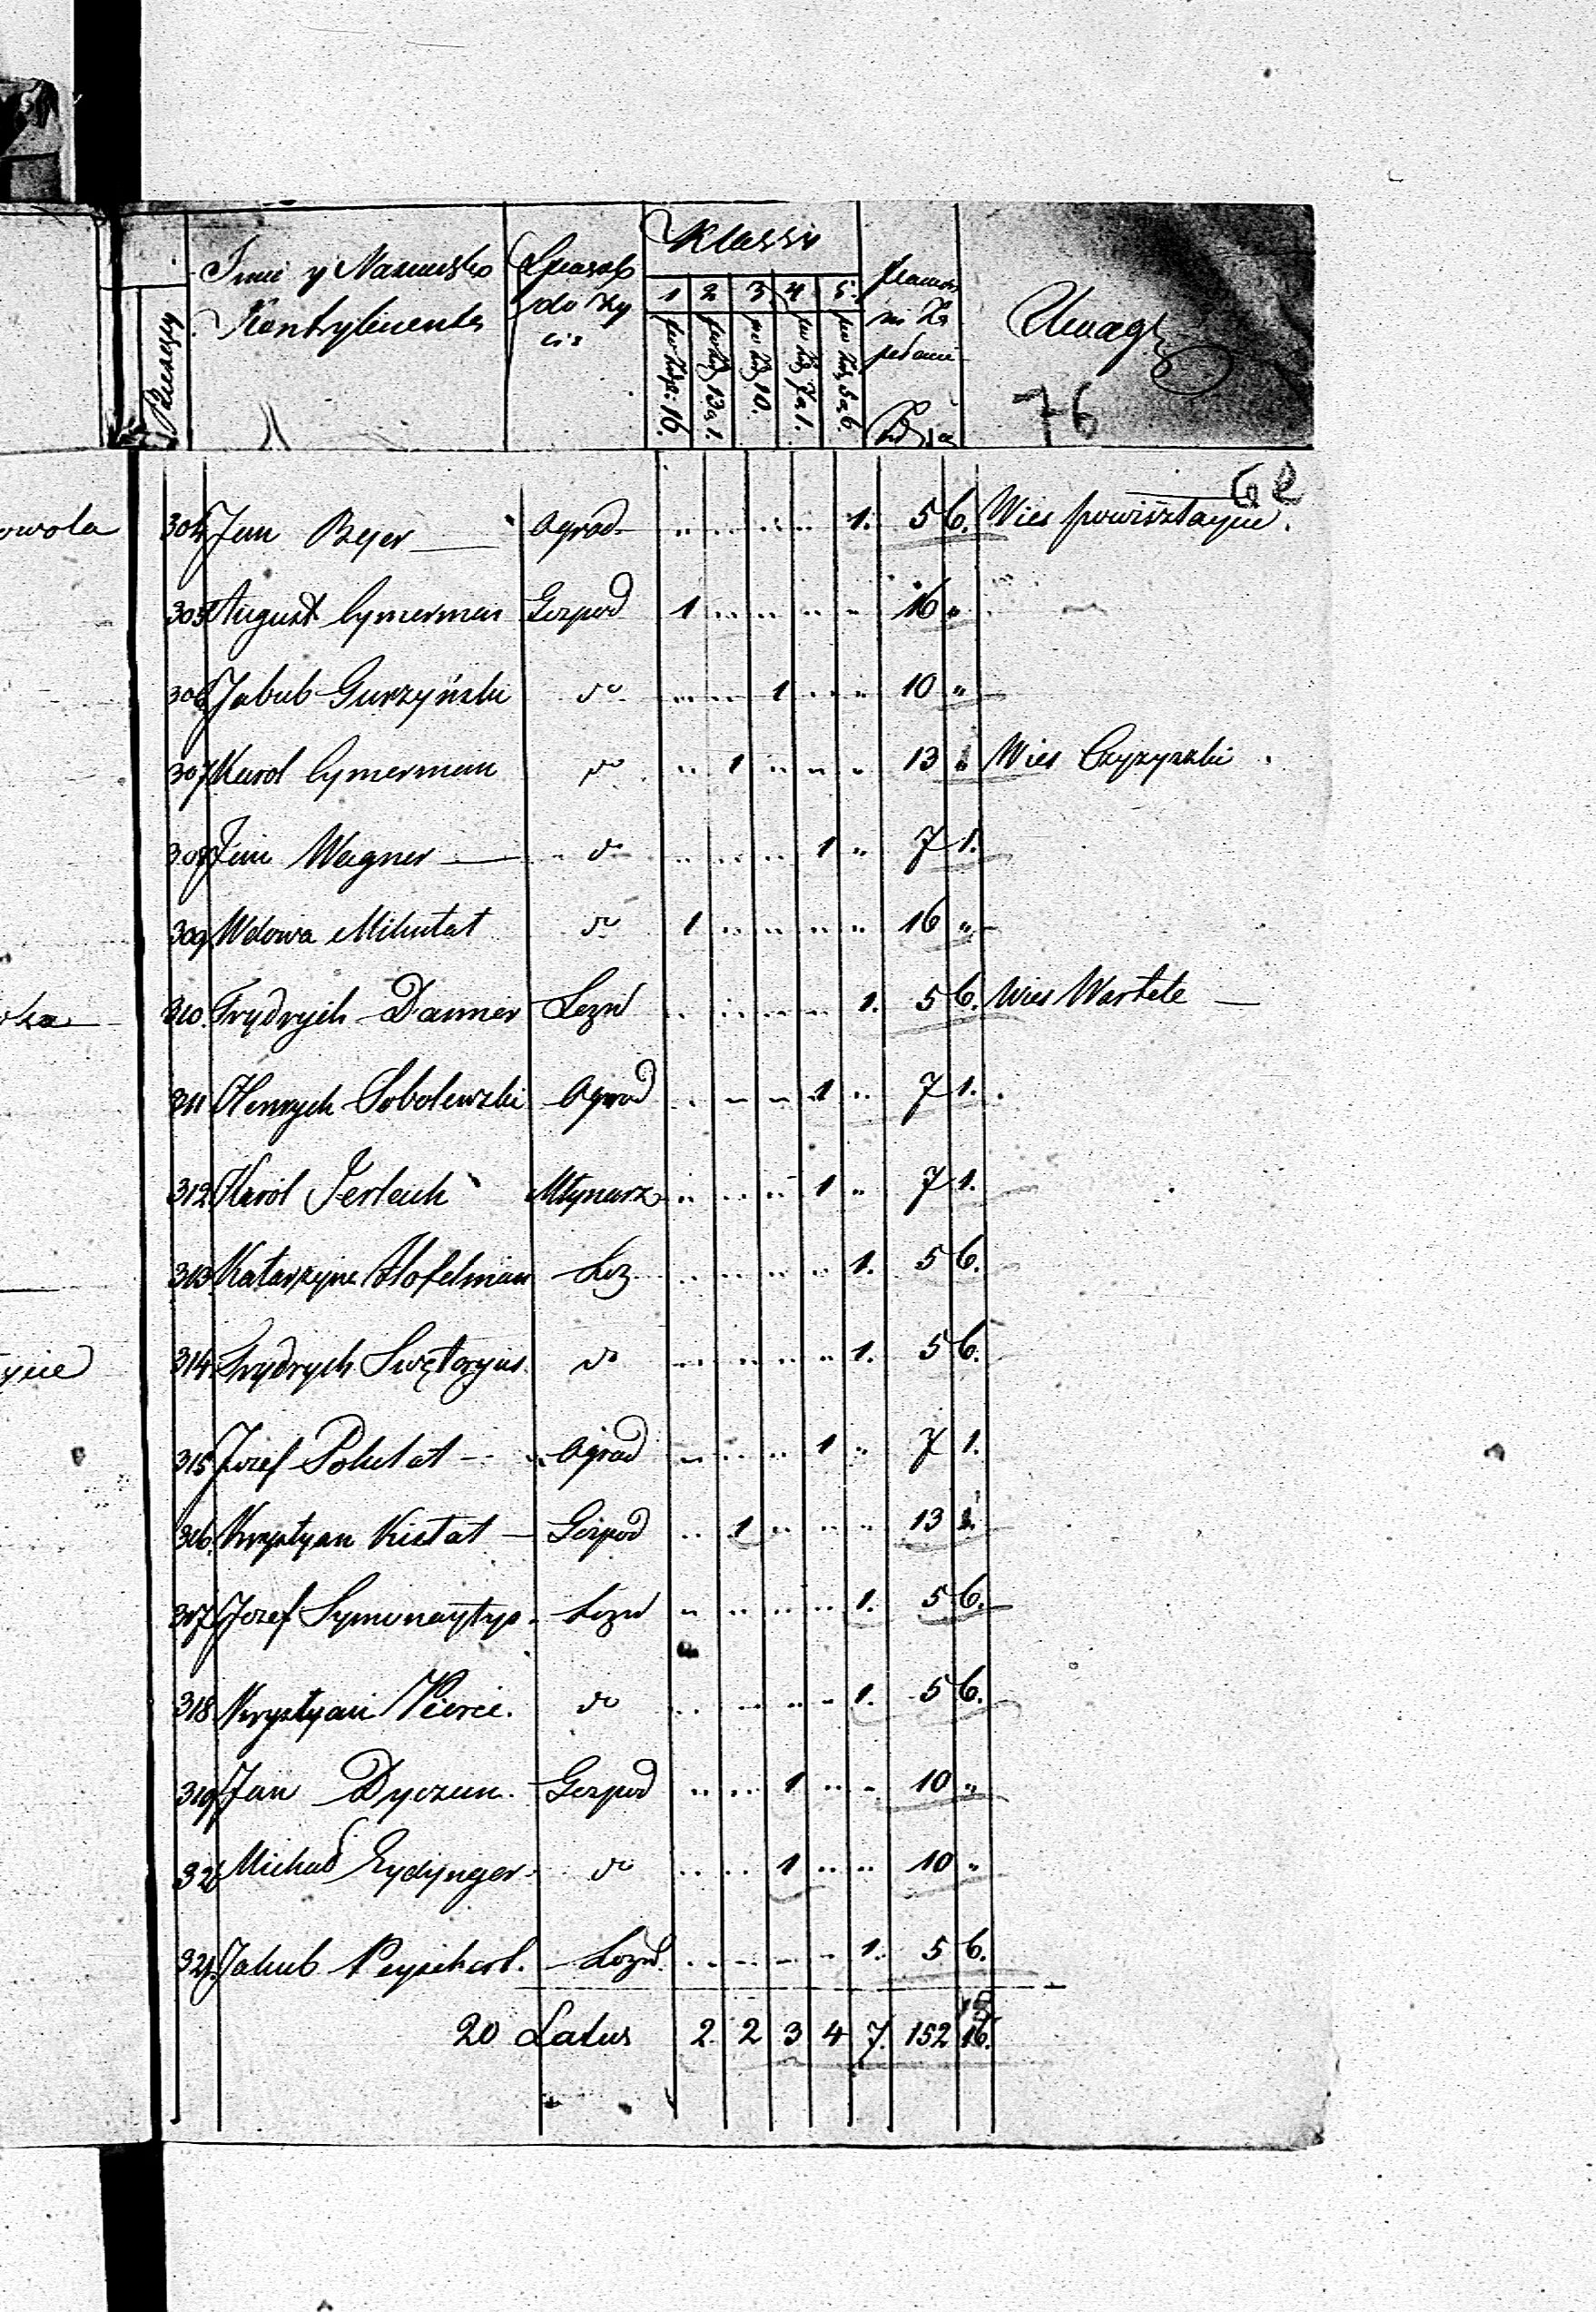 Klassy
Imie y Nazwisko Kontrybuenta
Sposob do Zy cia
1 2 3 4 5
Uwagi
76
62
owola 304 Jan Bejer Ogrod 1. 5 6. Wies powisztayce.
305 August Cymerman Gospod 1 16 "
306 Jakub Gurzyński do 1 10 "
307 Karol Cymerman do 1 13 1 Wies Czyzyszki
308 Jan Wagner do 1 7 1.
309 Wdowa Mikutat do 1 16 "
310. Frydrych Danner Lozn 1. 5 6. Wies Wartele
311 Henrych Sobolewski Ogrod 1 7 1.
312 Karol Jerlach Młynarz 1 7 1.
313 Katarzyna Hofelman Loz 1. 5 6.
314 Frydrych Swętoryus do 1. 5 6.
315 Jozef Pokutat Ogrod 1 7 1.
316. Krystyan Kistat Gospod 1 13 1.
317 Jozef Symonaytys Lozn 1. 5 6.
318 Krystyan Pierce. do 1. 5 6.
319 Jan Dyczun. Gospod 1 10 "
32 Michał Eydynger do 1 10 "
321. Jakub Peyschort. Lozn. 1. 5 6.
20 Latus 2 2 3 4 7. 152 16.